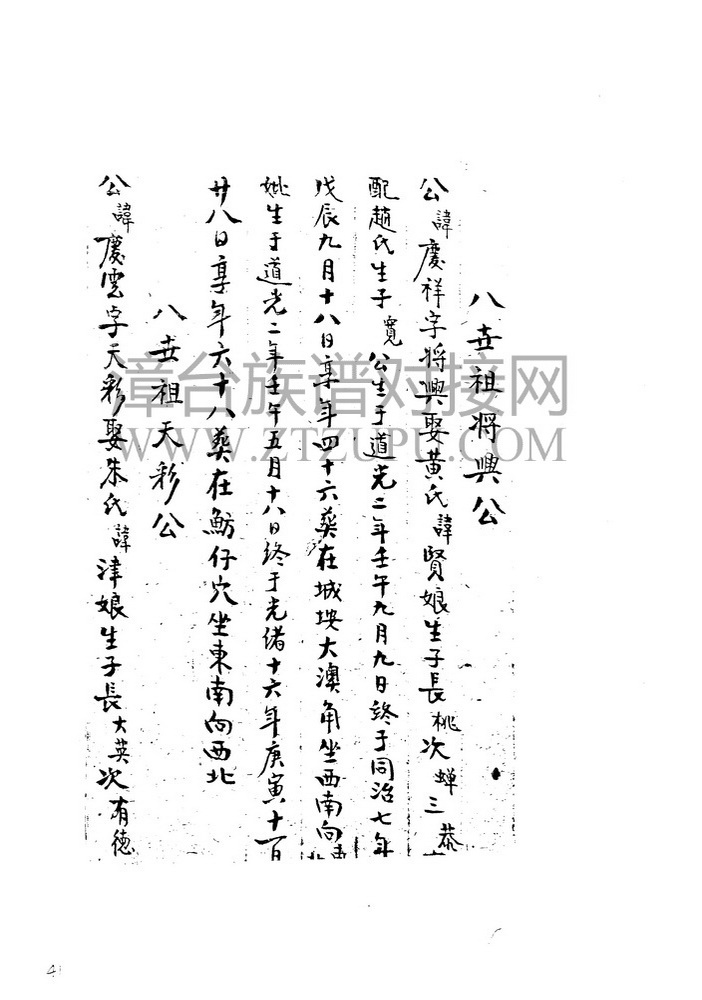 八世祖將興公
公諱慶祥字將興娶黃氏諱賢娘生子長桃次蟬三恭
配趙氏生子寬公生于道光二年壬午九月九日終于同治七年
戊辰九月十八日享年四十六葬在城埯大澳角坐西南向東北
妣生于道光二年壬午五月十八日終于光緒十六年庚寅十一月
廿八日享年六十八葬在魴仔穴坐東南向西北
八世祖天彩公
公諱慶雲字天彩娶朱氏諱津娘生子長大英次有德
漳台族谱对接网
WWW.ZTZUPU.COM
4